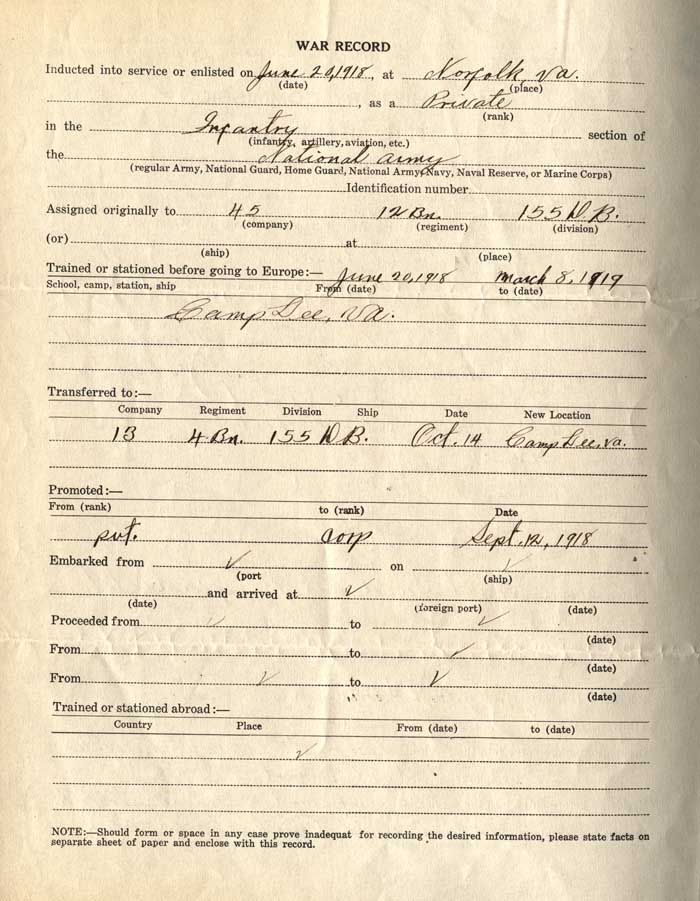 WAR RECORD
Inducted into service or enlisted on June 20, 1918, at Norfolk, Va.
(date) (place)
, as a Private
(rank)
in the Infantry section of
(infantry, artillery, aviation, etc.)
the National Army
(regular Army, National Guard, Home Guard, National Army, Navy, Naval Reserve, or Marine Corps)
Identification number
Assigned originally to 45 12 Bn. 155 D.B.
(company) (regiment) (division)
(or) at
(ship) (place)
Trained or stationed before going to Europe:— June 20, 1918 March 8, 1919
School, camp, station, ship From (date) to (date)
Camp Lee, Va.
Transferred to:—
Company Regiment Division Ship Date New Location
13 4 Bn. 155 D.B. Oct. 14 Camp Lee, Va.
Promoted:—
From (rank) to (rank) Date
pvt. corp Sept. 12, 1918
Embarked from ✓ on ✓
(port (ship)
and arrived at ✓
(date) (foreign port) (date)
Proceeded from ✓ to ✓
(date)
From to ✓
(date)
From ✓ to ✓
(date)
Trained or stationed abroad:—
Country Place From (date) to (date)
✓
NOTE:—Should form or space in any case prove inadequat for recording the desired information, please state facts on
separate sheet of paper and enclose with this record.